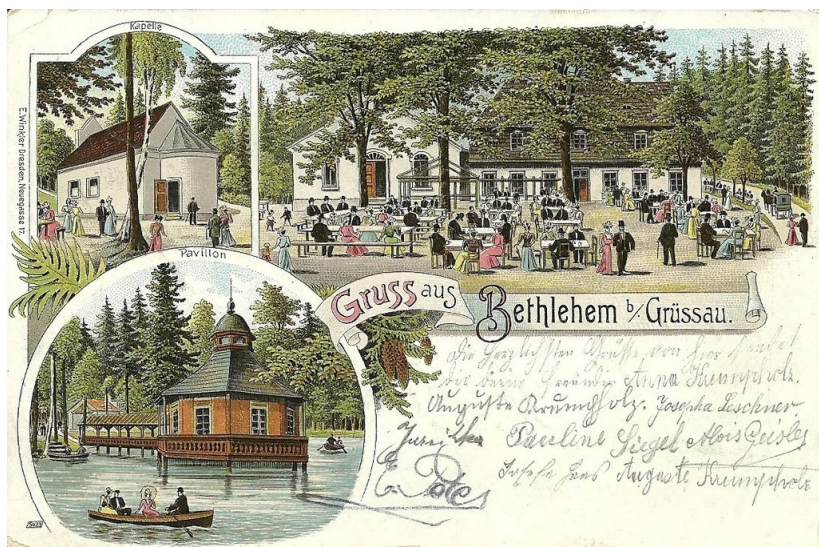 Kapelle
E. Winkler Dresden, Neuegasse 17.
Pavillon
Gruss aus
Bethlehem b/. Grüssau.
Die herzlichsten Grüsse von hier sendet
Anna Krumpholz.
Auguste Krumpholz. Leschner.
Pauline Siegel Alois Geisler
Auguste Krumpholz